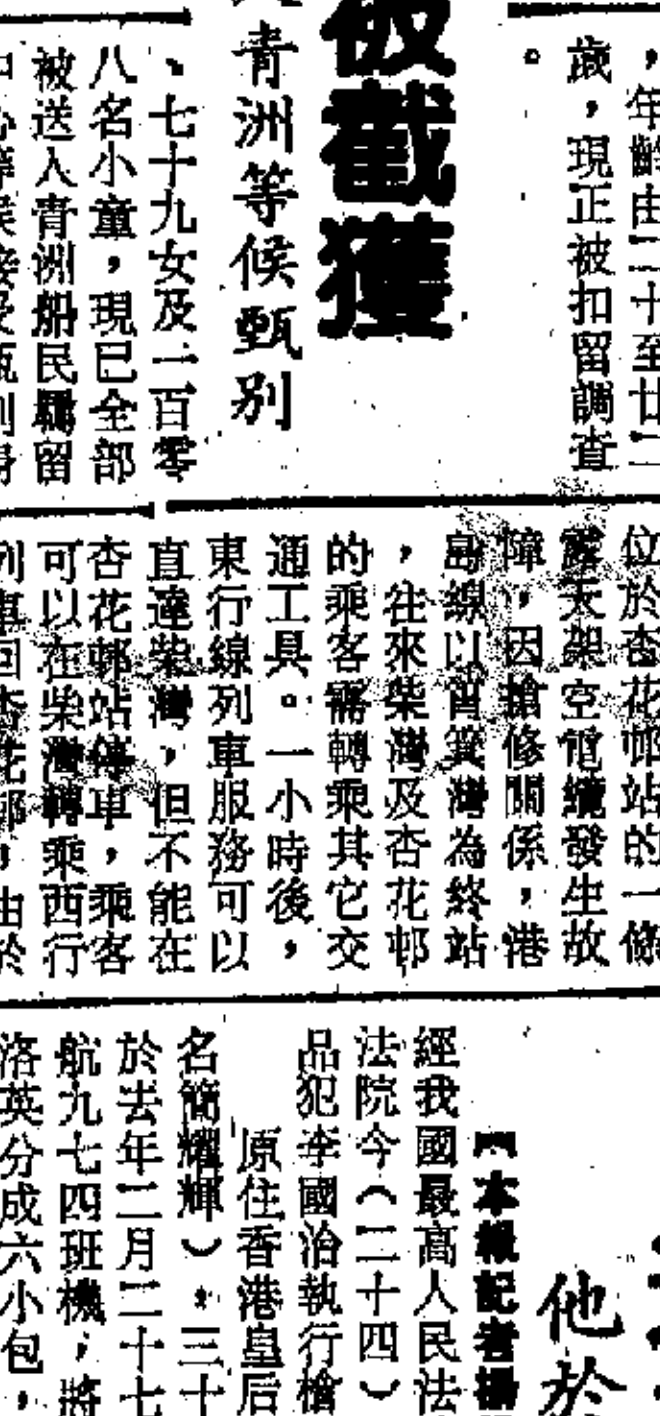 ，年齡由二十至廿二
歲，現正被扣留調查
。
被截獲
青洲等候甄別
、七十九女及一百零
八名小童，現已全部
被送入青洲船民羈留
位於杏花邨站的一條
露天架空電纜發生故
障，因搶修關係，港
島線以筲箕灣為終站
，往來柴灣及杏花邨
的乘客需轉乘其它交
通工具。一小時後，
東行線列車服務可以
直達柴灣，但不能在
杏花邨站停車，乘客
可以在柴灣轉乘西行
列車回杏花邨，由於
他於
【本報記者
經我國最高人民法
法院今（二十四）
品犯李國治執行槍
原住香港皇后
名簡耀輝），三十
於去年二月二十七
航九七四班機，將
洛英分成六小包，